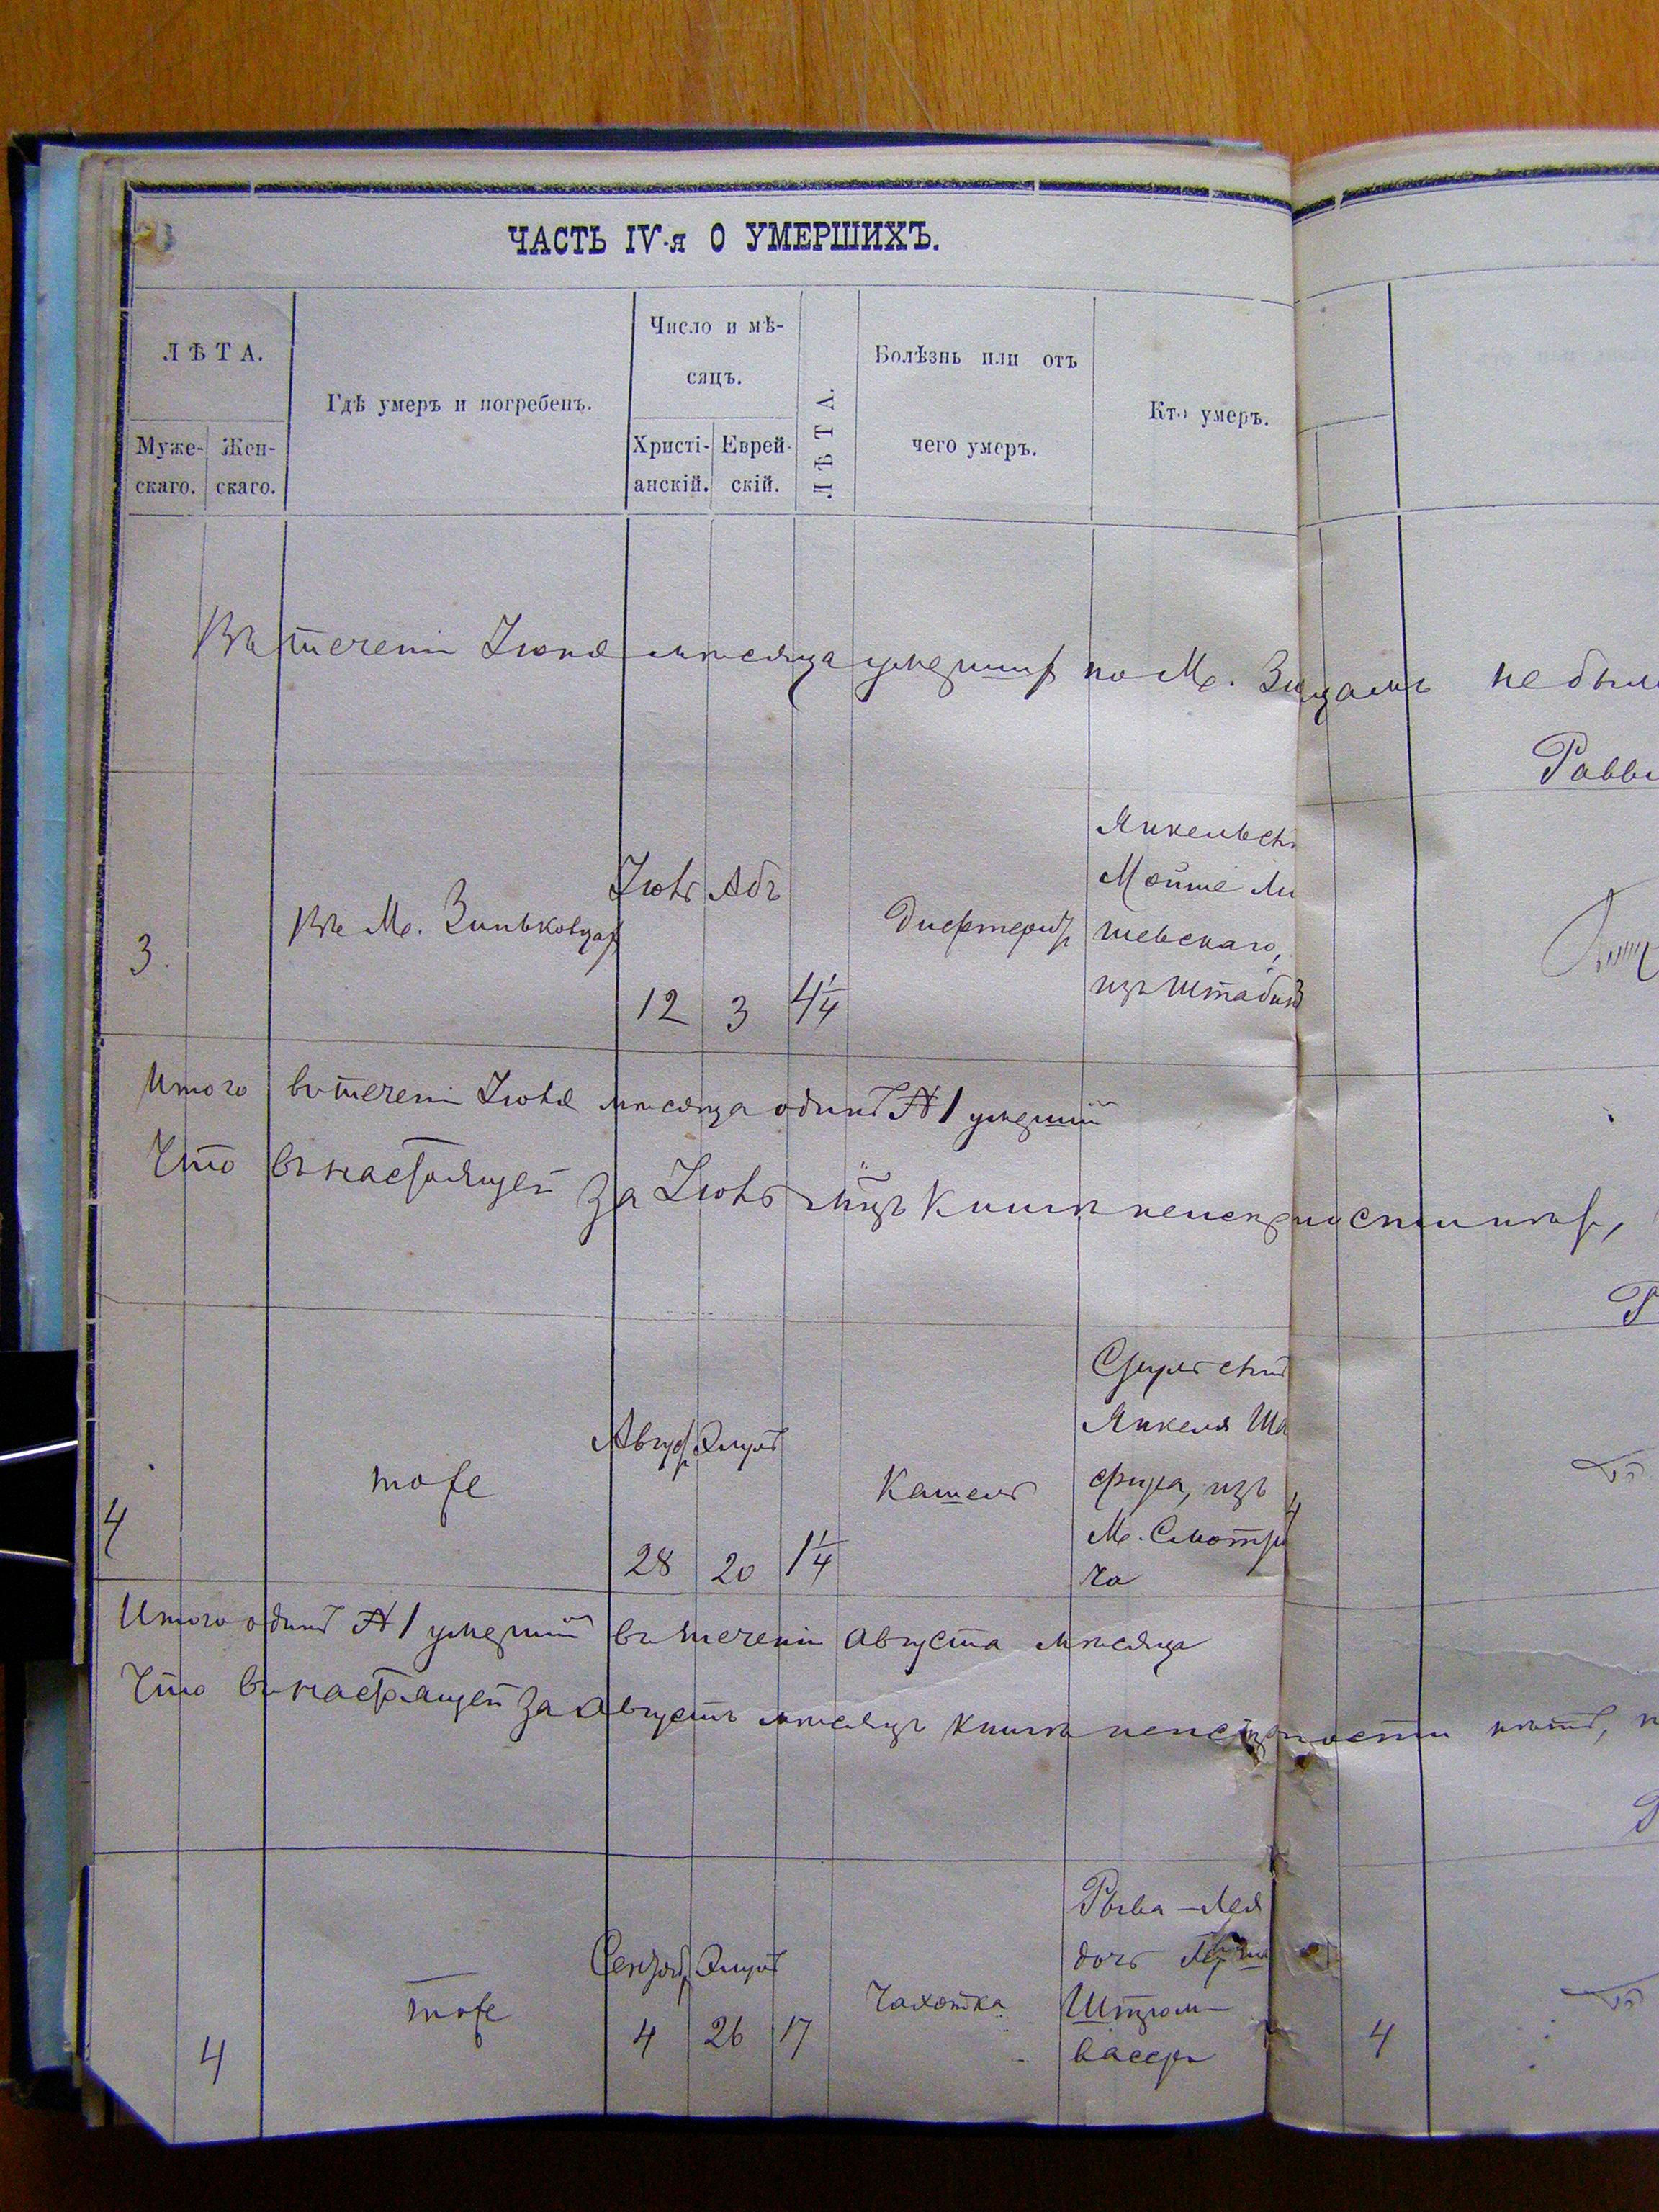 ЧАСТЬ IV-я О УМЕРШИХЪ.
ЛѢТА.
Муже-
скаго.
Жен-
скаго.
Гдѣ умеръ и погребенъ.
Число и мѣ-
сяцъ.
Христі-
анскій.
Еврей-
скій.
ЛѢТА.
Болѣзнь или отъ
чего умеръ.
Кто умеръ.
Въ теченіи Іюня мѣсяца умершихъ по М. не был
Равви
3.
Въ М. Зиньковцахъ
Іюль
12
Абъ
3
4 1/4
Дифтеритъ
Янкель сы
Мойше Ли
шевскаго,
изъ
3
Итого въ теченіи Іюля мѣсяца одинъ № 1 умершій
Что въ настоящей за Іюль мцъ книгѣ неисправности нѣтъ,
4
тоже
Авгус
28
Элулъ
20
1 1/4
Кашель
Сруль сынъ
Янкеля Ша
фира, изъ
М. Смотри
ча
4
Итого одинъ № 1 умершій въ теченіи августа мѣсяца
Что въ настоящей за августъ мѣсяцъ книгѣ неисправности нѣтъ,
4
тоже
Сентяб
4
Элулъ
26
17
Чахотка
Рыва-Лея
дочь
Штром-
вассеръ
4